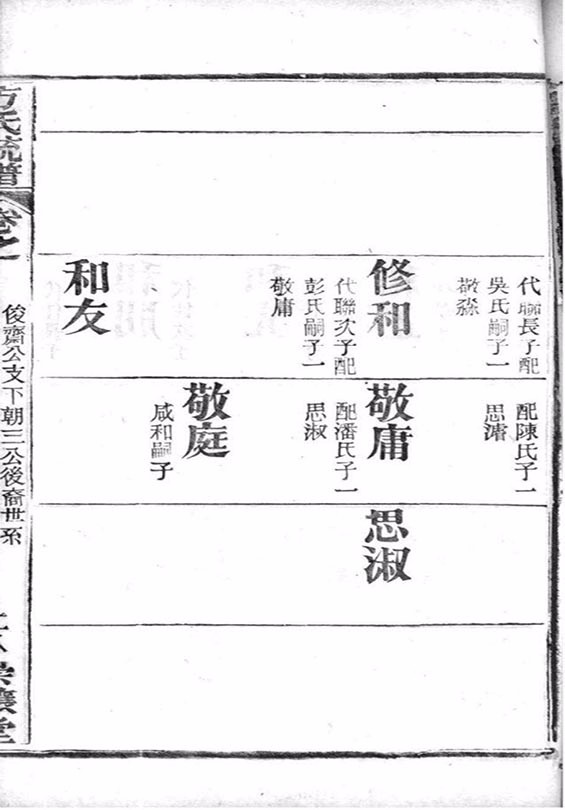 代聯長子配
吳氏嗣子一
敬淼
修和
代聯次子配
彭氏嗣子一
敬庸
和友
配陳氏子一
思濬
敬庸
配潘氏子一
思淑
敬庭
咸和嗣子
思淑
方氏統譜
卷之
俊齋公支下朝三公後裔世系
崇讓堂